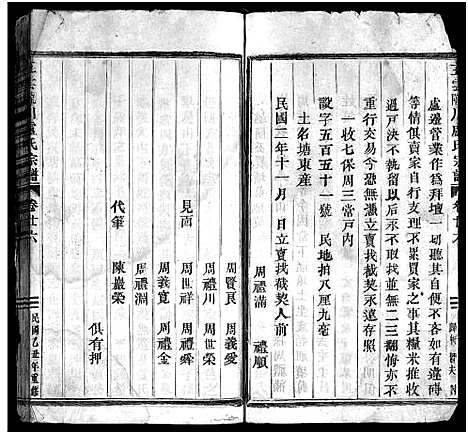 五雲隴川盧氏宗譜
卷廿六
處邊管業作為拜壇一切聽其自便不各如有違碍
等情俱賣家自行支理不累買家之事其糧米推收
過戶決不執留以後亦不取找並無二三翻悔亦不
重行交易今恐無憑立賣找截契永遠存照
一收七保周三當戶內
土名塘東產
設字五百五十一號 民地拍八厘九毫
民國三年十一月 日立賣找截契人前
周禮滿 禮順
周賢良 周義愛
周禮川 周世榮
見面 周世祥 周禮舜
周義寬 周禮金
周禮淵
代筆 陳巖榮
俱有押
五雲隴川盧氏宗譜
卷廿六
民國乙丑年重修